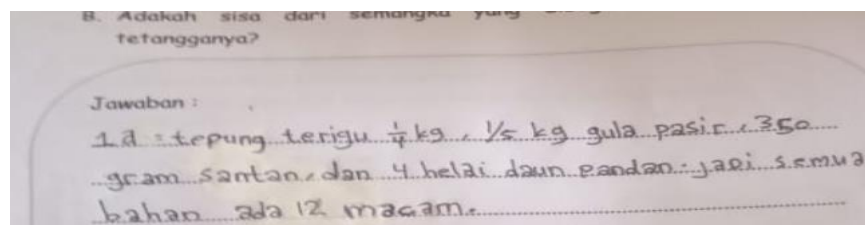 B. Adakah sisa dari semangka yang
tetangganya?
Jawaban :
1 a = tepung terigu 1/4 kg, 1/5 kg gula pasir, 350
gram santan, dan 4 helai daun pandan. jadi semua
bahan ada 12 macam.